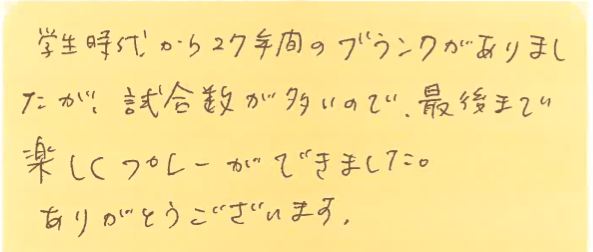 学生時代から27年間のブランクがありまし
たが、試合数が多いので、最後まで
楽しくプレーができました。
ありがとうございます。